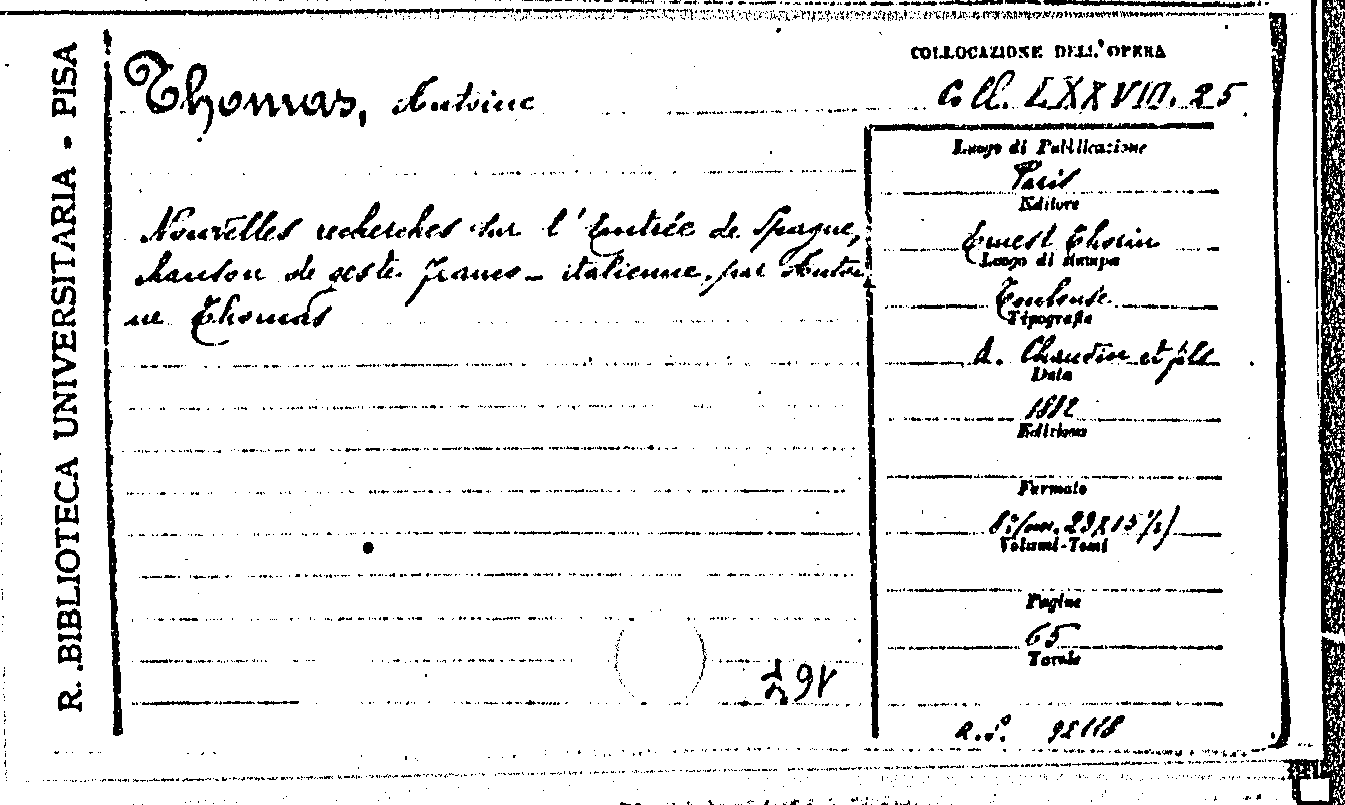 R. BIBLIOTECA UNIVERSITARIA - PISA
Thomas, Antoine
Nouvelles recherches sur l'Entrée de Spagne,
chanson de geste franco-italienne, par Antoi
ne Thomas
COLLOCAZIONE DELL'OPERA
Coll. LXXVIII. 25
Luogo di Pubblicazione
Paris
Editore
Ernest Thorin
Luogo di stampa
Toulouse
Tipografia
A. Chauvin et fils
Data
1882
Edizione
Formato
8º (cm. 23x15 ½)
Volumi-Tomi
Pagine
65
Tavole
a.s. 92118